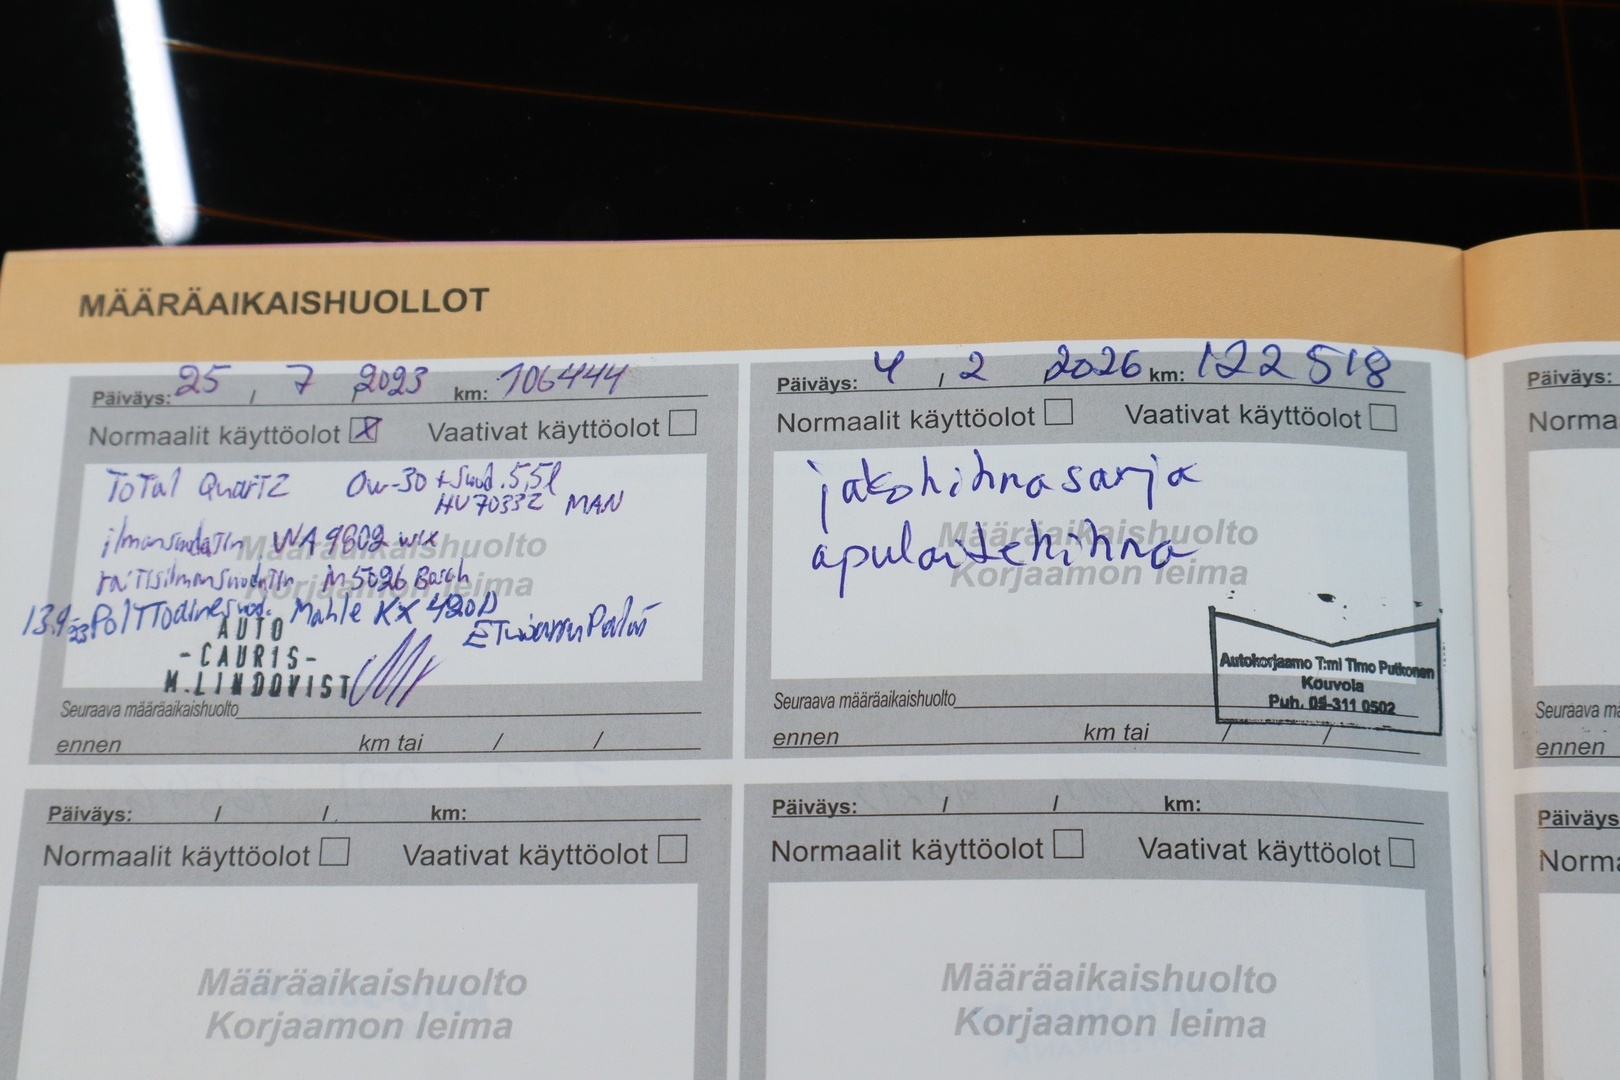 MÄÄRÄAIKAISHUOLLOT
Päiväys: 25 / 7 2023 km: 106444
Normaalit käyttöolot X Vaativat käyttöolot
Total Quartz 0w-30 + Suod. 5,5l
HU7033Z MAN
ilmansuodatin WA9802 wix
Määräaikaishuolto
raitisilmansuodatin Bosch
Korjaamon leima
13.9 23 Polttoainesuod. Mahle KX 420D
AUTO
-CAURIS-
M.LINDQVIST
Seuraava määräaikaishuolto
ennen km tai / /
Päiväys: 4 / 2 2026 km: 122518
Normaalit käyttöolot Vaativat käyttöolot
jakohihnasarja
Määräaikaishuolto
apulaitehihna
Korjaamon leima
Autokorjaamo T:mi Timo Putkonen
Kouvola
Puh. 05-311 0502
Seuraava määräaikaishuolto
ennen km tai / /
Päiväys:
Norma
Seuraava mä
ennen
Päiväys: / / km:
Normaalit käyttöolot Vaativat käyttöolot
Määräaikaishuolto
Korjaamon leima
Päiväys: / / km:
Normaalit käyttöolot Vaativat käyttöolot
Määräaikaishuolto
Korjaamon leima
Päiväys
Norma